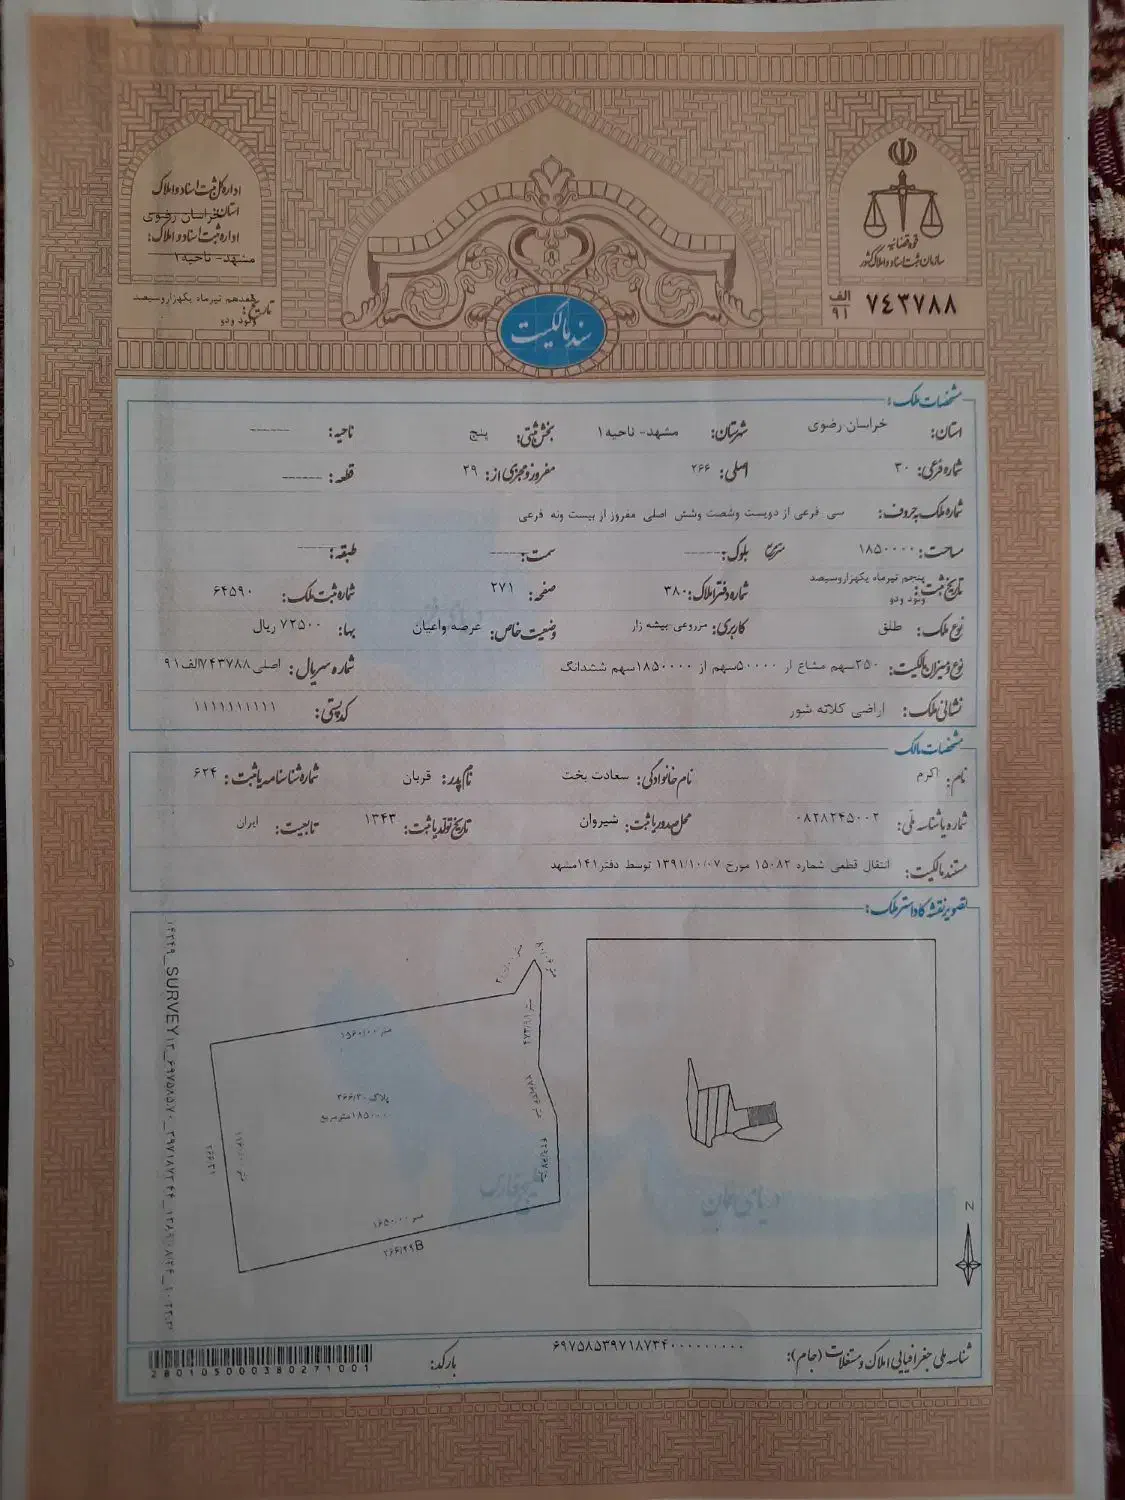 قوه قضائیه
سازمان ثبت اسناد و املاک کشور
اداره کل ثبت اسناد و املاک
استان: خراسان رضوی
اداره ثبت اسناد و املاک:
مشهد- ناحیه ۱
تاریخ: هفدهم تیرماه یکهزاروسیصد ونود ودو
۷۴۳۷۸۸ الف ۹۱
سند مالکیت
مشخصات ملک:
استان: خراسان رضوی شهرستان: مشهد- ناحیه ۱ بخش ثبتی: پنج ناحیه: -------
شماره فرعی: ۳۰ اصلی: ۲۶۶ مفروز و مجزی از: ۲۹ قطعه: -------
شماره ملک به حروف: سی فرعی از دویست وشصت وشش اصلی مفروز از بیست ونه فرعی
مساحت: ۱۸۵۰۰۰۰ مترمربع بلوک: ------- سمت: ------- طبقه: -------
تاریخ ثبت: پنجم تیرماه یکهزاروسیصد ونود ودو شماره دفتر املاک: ۳۸۰ صفحه: ۲۷۱ شماره ثبت ملک: ۶۴۵۹۰
نوع ملک: طلق کاربری: مزروعی بیشه زار وضعیت خاص: عرصه واعیان بها: ۷۲۵۰۰ ریال
نوع و میزان مالکیت: ۲۵۰سهم مشاع از ۵۰۰۰۰سهم از ۱۸۵۰۰۰۰سهم ششدانگ شماره سریال: اصلی ۷۴۳۷۸۸الف۹۱
نشانی ملک: اراضی کلاته شور کدپستی: ۱۱۱۱۱۱۱۱۱۱
مشخصات مالک
نام: اکرم نام خانوادگی: سعادت بخت نام پدر: قربان شماره شناسنامه یا ثبت: ۶۲۴
شماره یا شناسه ملی: ۰۸۲۸۲۴۵۰۰۲ محل صدور یا ثبت: شیروان تاریخ تولد یا ثبت: ۱۳۴۳ تابعیت: ایران
مستند مالکیت: انتقال قطعی شماره ۱۵۰۸۲ مورخ ۱۳۹۱/۱۰/۰۷ توسط دفتر۱۴۱مشهد
تصویر نقشه کاداستر ملک:
متر ۱۵۶۰/۰۰
پلاک ۲۶۶/۳۰
۱۸۵۰۰۰۰مترمربع
متر ۱۶۵۰/۰۰
۲۶۶/۲۹B
خلیج فارس
دریای عمان
N
شناسه ملی جغرافیایی املاک و مستغلات (جام): ۶۹۷۵۸۵۳۹۷۱۸۷۳۴۰۰۰۰۰۰۰۰۰۰
بارکد:
2801050003802710​01